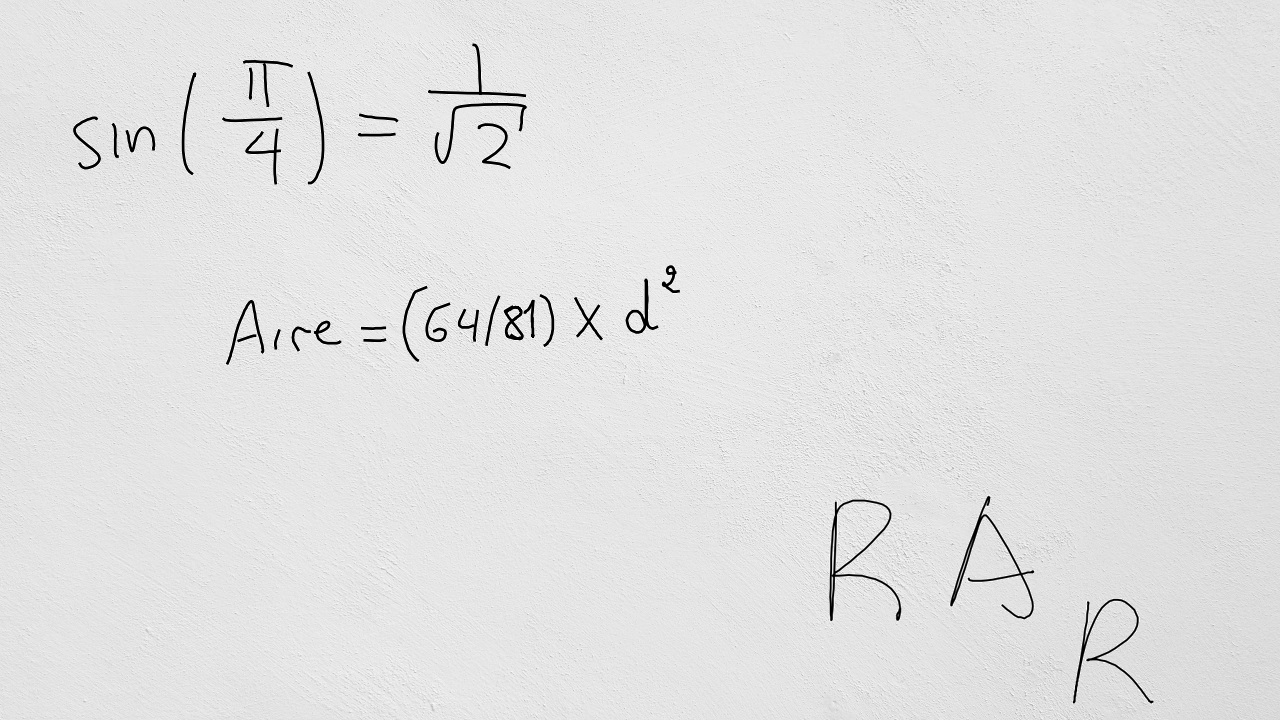 sin(π/4) = 1/√2
Aire = (64/81) X d²
R A
R